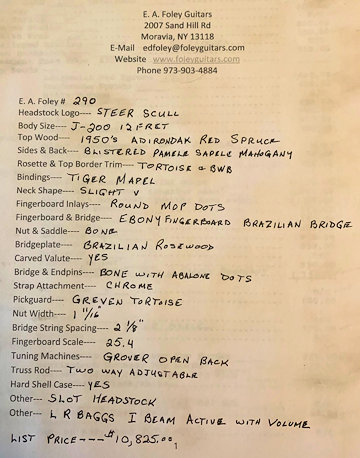 E. A. Foley Guitars
2007 Sand Hill Rd
Moravia, NY 13118
E-Mail edfoley@foleyguitars.com
Website www.foleyguitars.com
Phone 973-903-4884
E. A. Foley # 290
Headstock Logo---- STEER SCULL
Body Size---- J-200 12 FRET
Top Wood---- 1950's ADIRONDAK RED SPRUCE
Sides & Back---- BLISTERED PAMELE SAPELE MAHOGANY
Rosette & Top Border Trim---- TORTOISE & BWB
Bindings---- TIGER MAPEL
Neck Shape---- SLIGHT V
Fingerboard Inlays---- ROUND MOP DOTS
Fingerboard & Bridge---- EBONY FINGERBOARD BRAZILIAN BRIDGE
Nut & Saddle---- BONE
Bridgeplate---- BRAZILIAN ROSEWOOD
Carved Valute---- YES
Bridge & Endpins---- BONE WITH ABALONE DOTS
Strap Attachment---- CHROME
Pickguard---- GREVEN TORTOISE
Nut Width---- 1 11/16"
Bridge String Spacing---- 2 1/8"
Fingerboard Scale---- 25.4
Tuning Machines---- GROVER OPEN BACK
Truss Rod---- TWO WAY ADJUSTABLE
Hard Shell Case---- YES
Other--- SLOT HEADSTOCK
Other--- L R BAGGS I BEAM ACTIVE WITH VOLUME
LIST PRICE---- $10,825.00
1